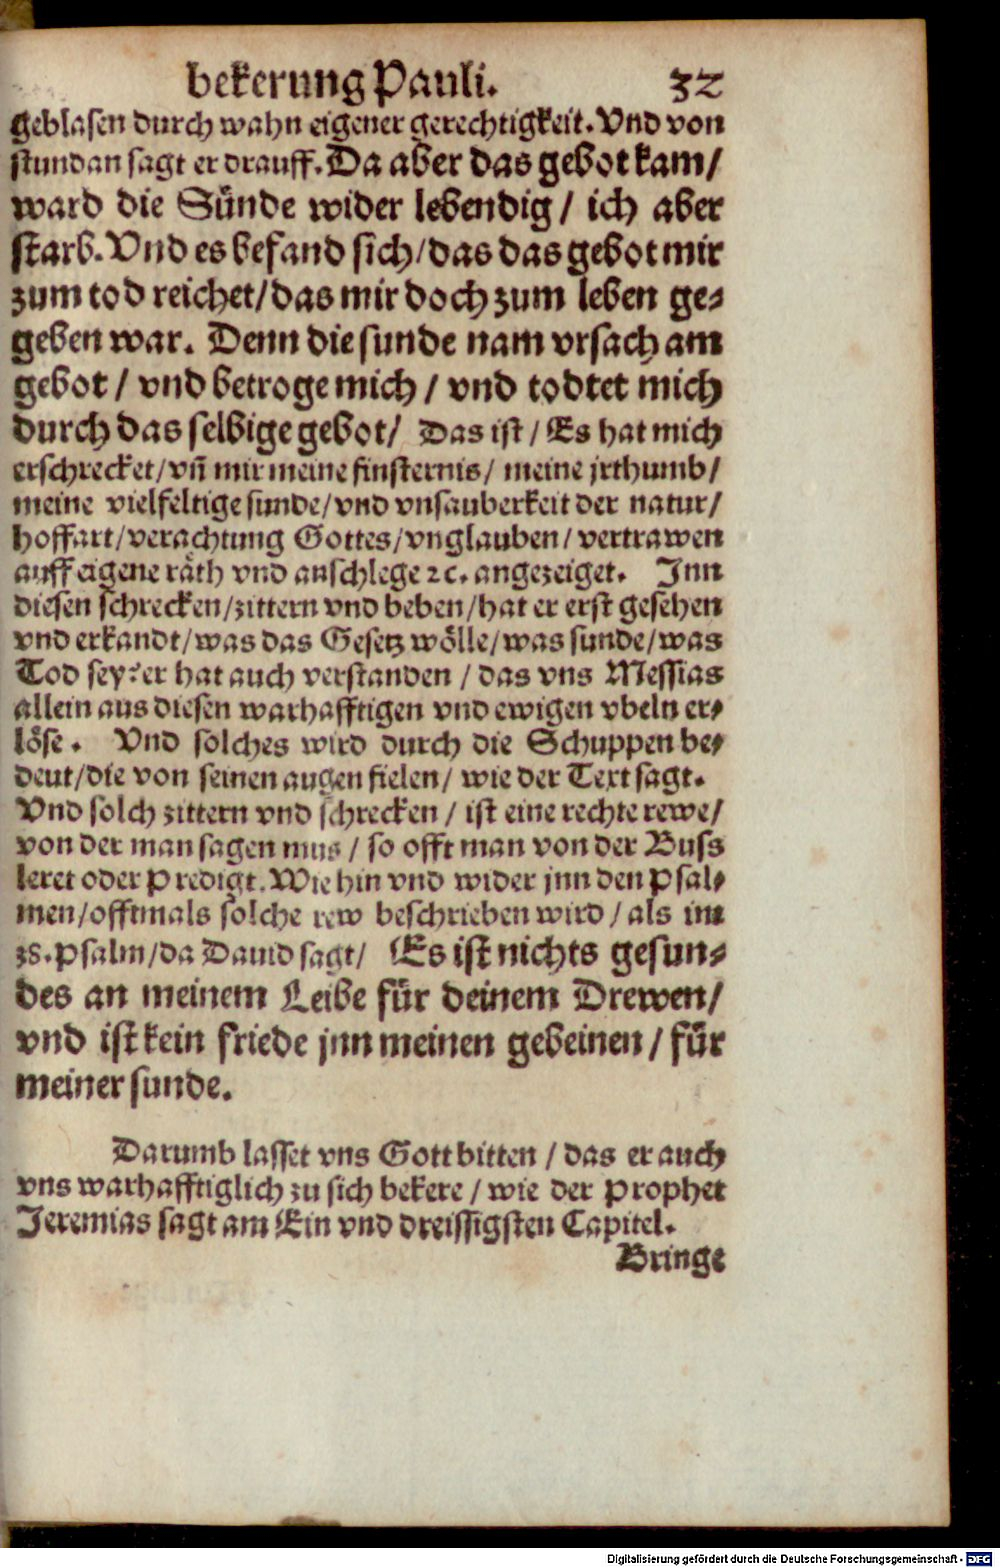 bekerung Pauli. 32
geblasen durch wahn eigener gerechtigkeit. Vnd von
stundan sagt er drauff. Da aber das gebot kam/
ward die Sünde wider lebendig/ ich aber
starb. Vnd es befand sich/das das gebot mir
zum tod reichet/das mir doch zum leben ge-
geben war. Denn die sunde nam vrsach am
gebot/ vnd betroge mich/ vnd todtet mich
durch das selbige gebot/ Das ist/ Es hat mich
erschrecket/vñ mir meine finsternis/ meine jrthumb/
meine vielfeltige sunde/vnd vnsauberkeit der natur/
hoffart/verachtung Gottes/vnglauben/vertrawen
auff eigene räth vnd anschlege ꝛc. angezeiget. Jnn
diesen schrecken/zittern vnd beben/hat er erst gesehen
vnd erkandt/was das Gesetz wölle/was sunde/was
Tod sey? er hat auch verstanden/ das vns Messias
allein aus diesen warhafftigen vnd ewigen vbeln er-
löse. Vnd solches wird durch die Schuppen be-
deut/die von seinen augen fielen/ wie der Text sagt.
Vnd solch zittern vnd schrecken/ ist eine rechte rewe/
von der man sagen mus/ so offt man von der Buss
leret oder Predigt. Wie hin vnd wider jnn den Psal-
men/offtmals solche rew beschrieben wird/ als im
38. Psalm/da Dauid sagt/ Es ist nichts gesun-
des an meinem Leibe für deinem Drewen/
vnd ist kein friede jnn meinen gebeinen/ für
meiner sunde.
Darumb lasset vns Gott bitten/ das er auch
vns warhafftiglich zu sich bekere/ wie der Prophet
Jeremias sagt am Ein vnd dreissigsten Capitel.
Bringe
Digitalisierung gefördert durch die Deutsche Forschungsgemeinschaft - DFG